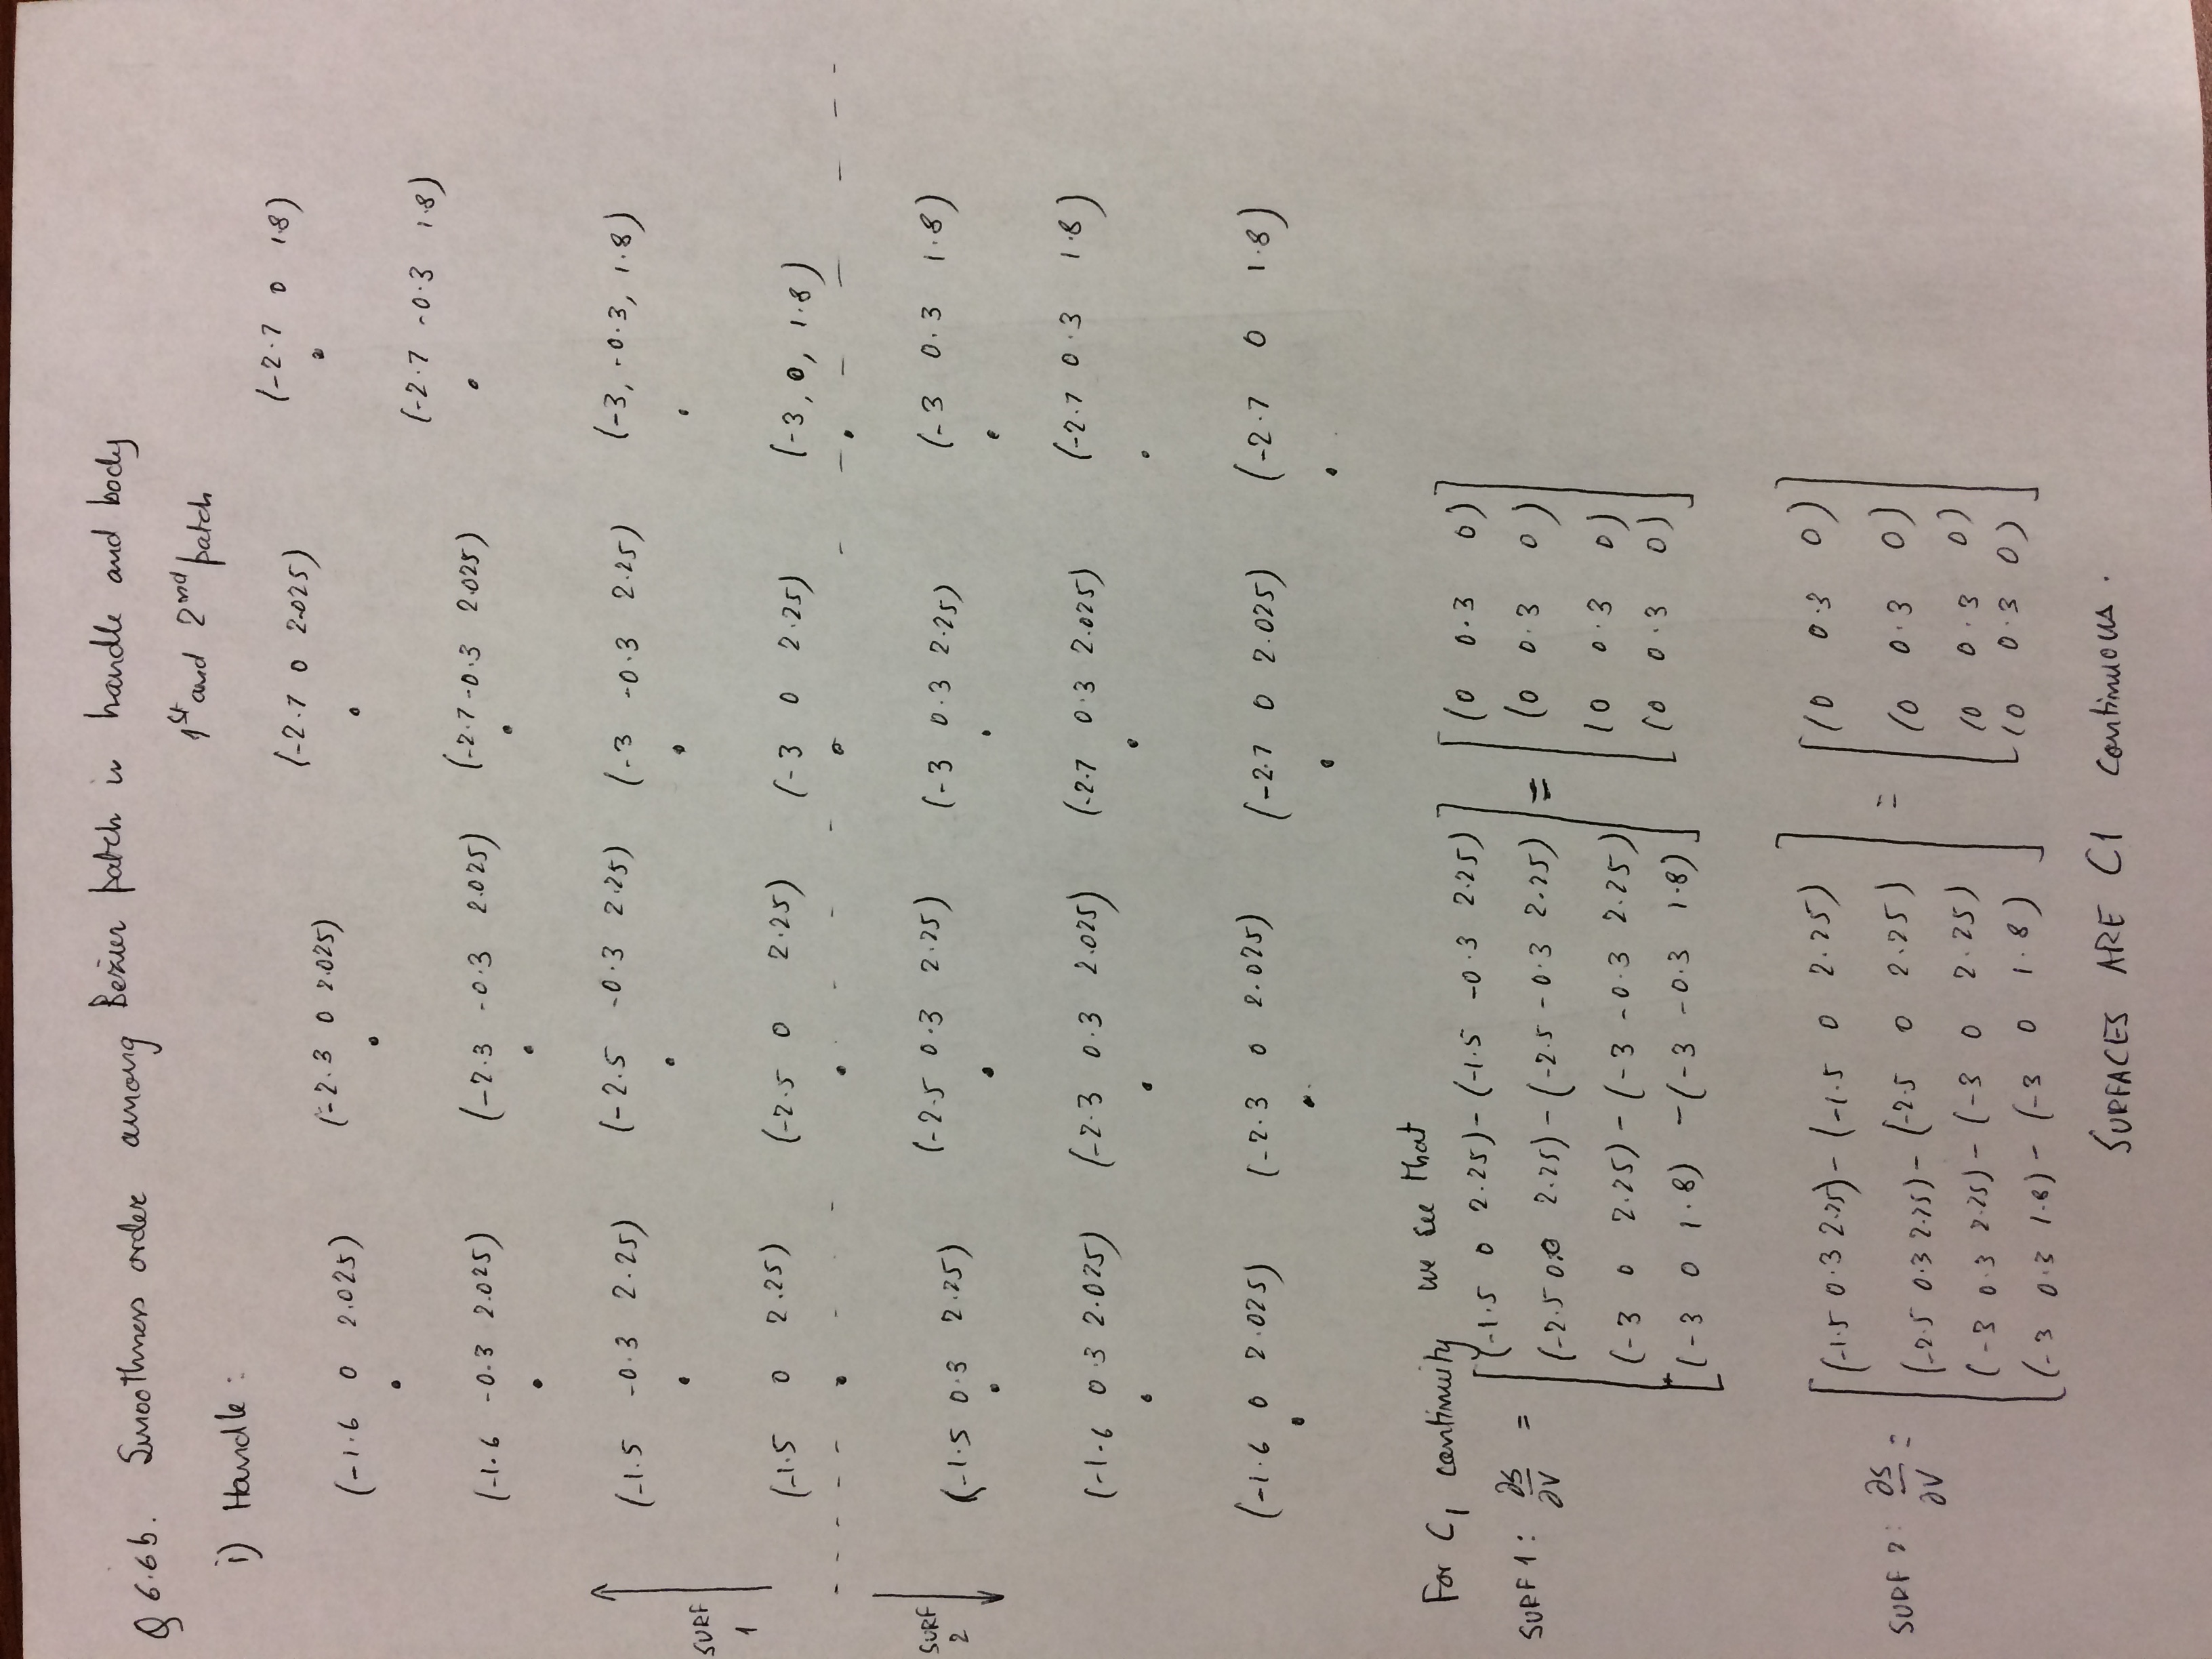 Q 6.6b. Smoothness order among Bezier patch in handle and body
1st and 2nd patch
i) Handle :
(-1.6 0 2.025) (-2.3 0 2.025) (-2.7 0 2.025) (-2.7 0 1.8)
(-1.6 -0.3 2.025) (-2.3 -0.3 2.025) (-2.7 -0.3 2.025) (-2.7 -0.3 1.8)
(-1.5 -0.3 2.25) (-2.5 -0.3 2.25) (-3 -0.3 2.25) (-3, -0.3, 1.8)
SURF
1
(-1.5 0 2.25) (-2.5 0 2.25) (-3 0 2.25) (-3, 0, 1.8)
SURF
2
(-1.5 0.3 2.25) (-2.5 0.3 2.25) (-3 0.3 2.25) (-3 0.3 1.8)
(-1.6 0.3 2.025) (-2.3 0.3 2.025) (-2.7 0.3 2.025) (-2.7 0.3 1.8)
(-1.6 0 2.025) (-2.3 0 2.025) (-2.7 0 2.025) (-2.7 0 1.8)
For C1 continuity we see that
SURF 1 : ∂s/∂v = [(-1.5 0 2.25) - (-1.5 -0.3 2.25)] = [(0 0.3 0)]
(-2.5 0.0 2.25) - (-2.5 -0.3 2.25) (0 0.3 0)
(-3 0 2.25) - (-3 -0.3 2.25) (0 0.3 0)
(-3 0 1.8) - (-3 -0.3 1.8) (0 0.3 0)
SURF 2 : ∂s/∂v = [(-1.5 0.3 2.25) - (-1.5 0 2.25)] = [(0 0.3 0)]
(-2.5 0.3 2.25) - (-2.5 0 2.25) (0 0.3 0)
(-3 0.3 2.25) - (-3 0 2.25) (0 0.3 0)
(-3 0.3 1.8) - (-3 0 1.8) (0 0.3 0)
SURFACES ARE C1 continuous .